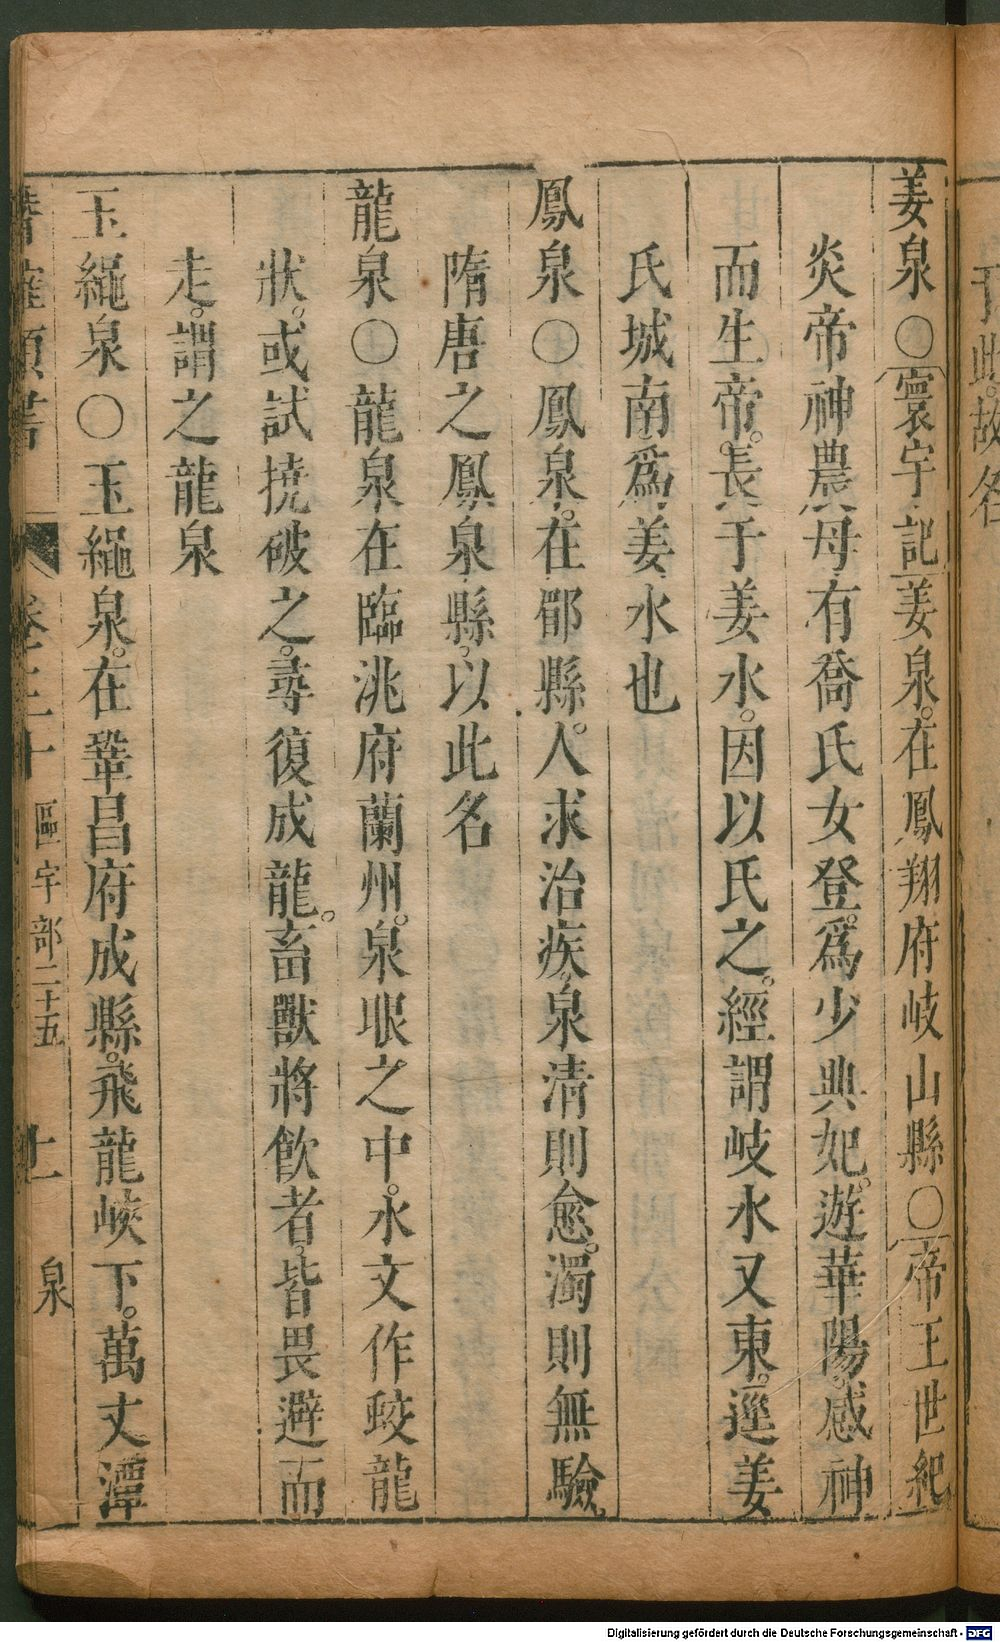 于此故名
姜泉○寰宇記姜泉。在鳳翔府岐山縣○帝王世紀
炎帝神農母有喬氏女登。爲少典妃。遊華陽。感神
而生帝。長于姜水。因以氏之。經謂岐水又東。逕姜
氏城南。爲姜水也
鳳泉○鳳泉。在郿縣。人求治疾。泉清則愈。濁則無驗。
隋唐之鳳泉縣。以此名
龍泉○龍泉在臨洮府蘭州。泉眼之中。水文作蛟龍
狀。或試撓破之。尋復成龍。畜獸將飲者。皆畏避而
走。謂之龍泉
玉繩泉○玉繩泉。在鞏昌府成縣。飛龍峽下。萬丈潭
潛確類書 卷三十 區宇部二十五 十一 泉
Digitalisierung gefördert durch die Deutsche Forschungsgemeinschaft - DFG